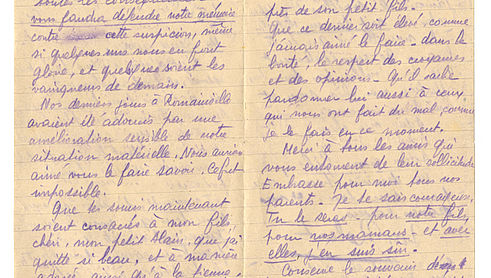 toutes les
vous faudra défendre notre mémoire
contre cette suspicion, même
si quelques uns nous en font
gloire, et quelques soient les
vainqueurs de demain.
Nos derniers jours à Romainville
avaient été adoucis par une
amélioration sensible de notre
situation matérielle. Nous aurions
aimé vous le faire savoir. Ce fut
impossible.
Que tes soins maintenant
soient consacrés à mon fils
chéri, mon petit Alain, que j'ai
quitté si beau, et à ma mère
adorée ainsi qu'à la tienne
près de son petit fils.
Que ce dernier soit élevé, comme
j'aurais aimé le faire - dans la
bonté, le respect des croyances
et des opinions - Qu'il sache
pardonner lui aussi à ceux
qui nous ont fait du mal, comme
je le fais en ce moment.
Merci à tous les amis qui
vous entourent de leur sollicitude
Embrasse pour moi tous nos
parents - Je te sais courageuse,
Tu le seras - pour notre fils,
pour nos mamans - et avec
elles, j'en suis sûr.
Conserve le souvenir